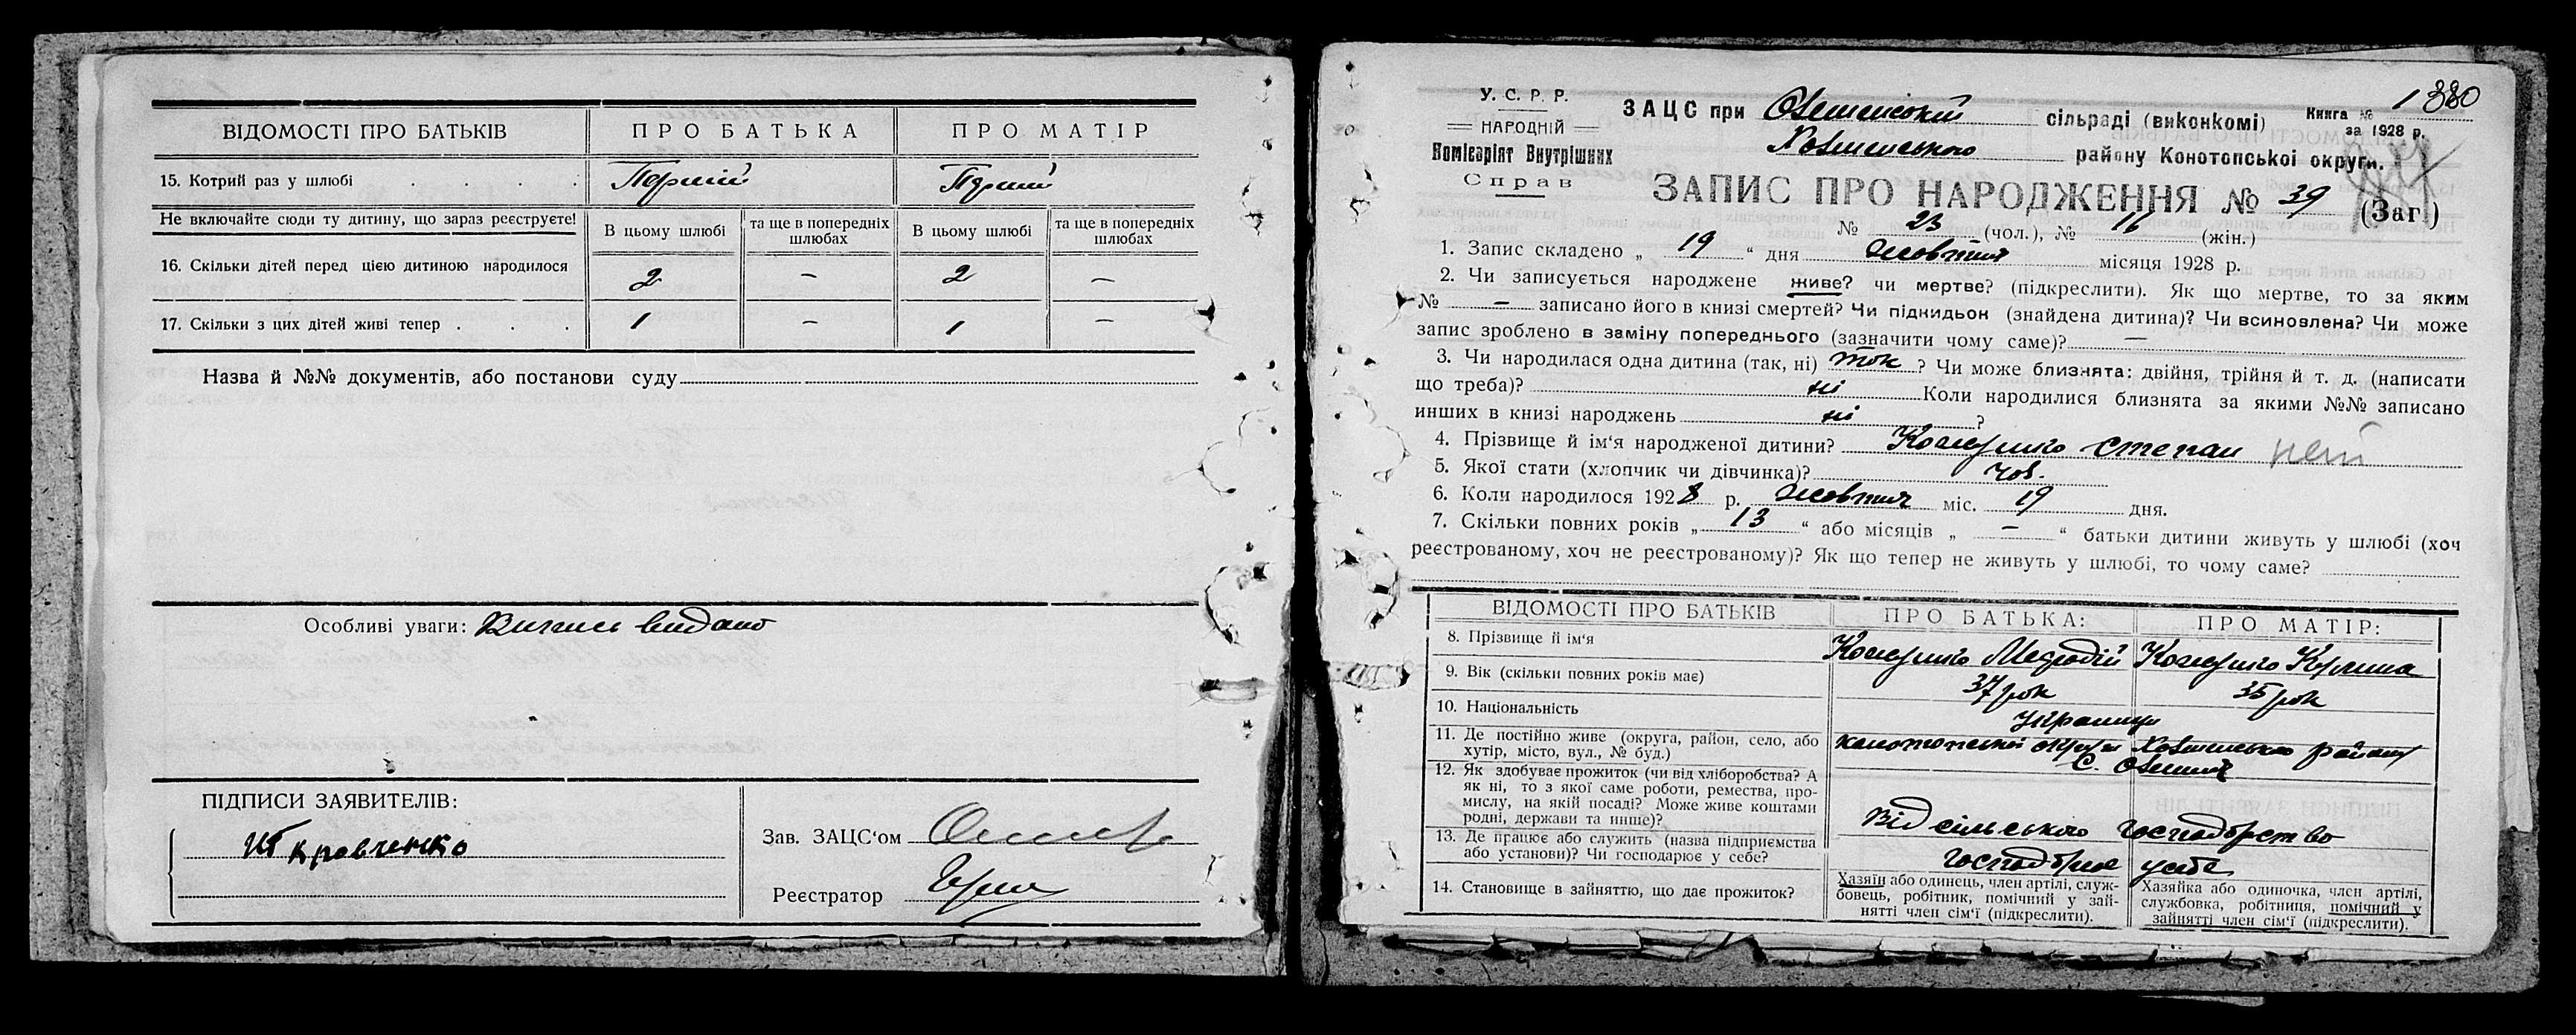 ВІДОМОСТІ ПРО БАТЬКІВ ПРО БАТЬКА ПРО МАТІР
15. Котрий раз у шлюбі . . . . Перший Перший
Не включайте сюди ту дитину, що зараз реєструєте!
В цьому шлюбі та ще в попередніх шлюбах В цьому шлюбі та ще в попередніх шлюбах
16. Скільки дітей перед цією дитиною народилося 2 – 2 –
17. Скільки з цих дітей живі тепер . . . 1 – 1 –
Назва й №№ документів, або постанови суду
Особливі уваги: Випись видано
ПІДПИСИ ЗАЯВИТЕЛІВ:
Кравченко
Зав. ЗАЦС‘ом
Реєстратор
У. С. Р. Р.
НАРОДНІЙ
Комісаріят Внутрішних
Справ
ЗАЦС при сільраді (виконкомі)
району Конотопської округи.
Книга № 1
за 1928 р.
330
ЗАПИС ПРО НАРОДЖЕННЯ № 39 (Заг.)
№ 23 (чол.), № 16 (жін.)
1. Запис складено „ 19 “ дня жовтня місяця 1928 р.
2. Чи записується народжене живе? чи мертве? (підкреслити). Як що мертве, то за яким
№ – записано його в книзі смертей? Чи підкидьок (знайдена дитина)? Чи всиновлена? Чи може
запис зроблено в заміну попереднього (зазначити чому саме)? –
3. Чи народилася одна дитина (так, ні) так ? Чи може близнята: двійня, трійня й т. д. (написати
що треба)? ні Коли народилися близнята за якими №№ записано
инших в книзі народжень ні ?
4. Прізвище й ім‘я народженої дитини? Кожушко Степан
5. Якої стати (хлопчик чи дівчинка)? чов.
6. Коли народилося 1928 р. жовтня міс. 19 дня.
7. Скільки повних років „ 13 “ або місяців „ – “ батьки дитини живуть у шлюбі (хоч
реєстрованому, хоч не реєстрованому)? Як що тепер не живуть у шлюбі, то чому саме?
ВІДОМОСТІ ПРО БАТЬКІВ ПРО БАТЬКА: ПРО МАТІР:
8. Прізвище й ім‘я Кожушко Мефодій Кожушко
9. Вік (скільки повних років має) 37 рок 35 рок
10. Національність Українці
11. Де постійно живе (округа, район, село, або
хутір, місто, вул., № буд.)
конотопської округи району
с.
12. Як здобуває прожиток (чи від хліборобства? А
як ні, то з якої саме роботи, ремества, про-
мислу, на якій посаді? Може живе коштами
родні, держави та инше)?
Від сільського господарство
13. Де працює або служить (назва підприємства
або установи)? Чи господарює у себе?
господарює у себе
14. Становище в зайняттю, що дає прожиток?
Хазяїн або одинець, член артілі, служ-
бовець, робітник, помічний у зай-
нятті член сім‘ї (підкреслити).
Хазяйка або одиночка, член артілі,
службовка, робітниця, помічний у
зайнятті член сім‘ї (підкреслити).